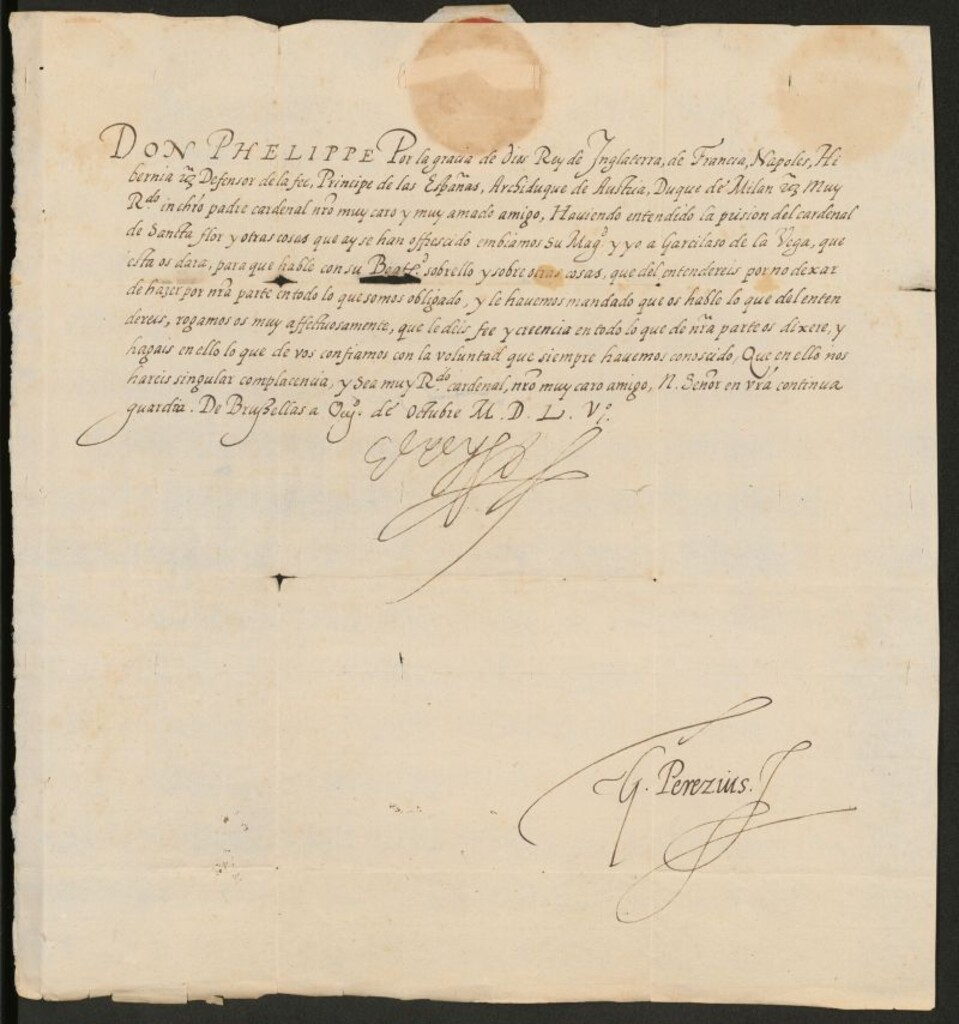 DON PHELIPPE Por la gracia de dios Rey de Inglaterra, de Francia, Napoles, Hi
bernia &c Defensor de la fee, Principe de las Españas, Archiduque de Austria, Duque de Milan &c Muy
R.do in chro padre cardenal nro muy caro y muy amado amigo, Haviendo entendido la prision del cardenal
de Sancta flor y otras cosas que ay se han offrescido embiamos su Mag.d y yo a Garcilaso de la Vega, que
esta os dara, para que hable con su Beat.d sobrello y sobre otras cosas, que del entendereis por no dexar
de hazer por nra parte en todo lo que somos obligado, y le havemos mandado que os hable lo que del enten
dereis, rogamos os muy affectuosamente, que le deis fee y creencia en todo lo que de nra parte os dixere, y
hagais en ello lo que de vos confiamos con la voluntad que siempre havemos conoscido, Que en ello nos
hareis singular complacencia, y sea muy R.do cardenal, nro muy caro amigo, N. Señor en vra continua
guardia. De Brussellas a de Octubre M. D. L. Vi.
El rey
G. Perezius.